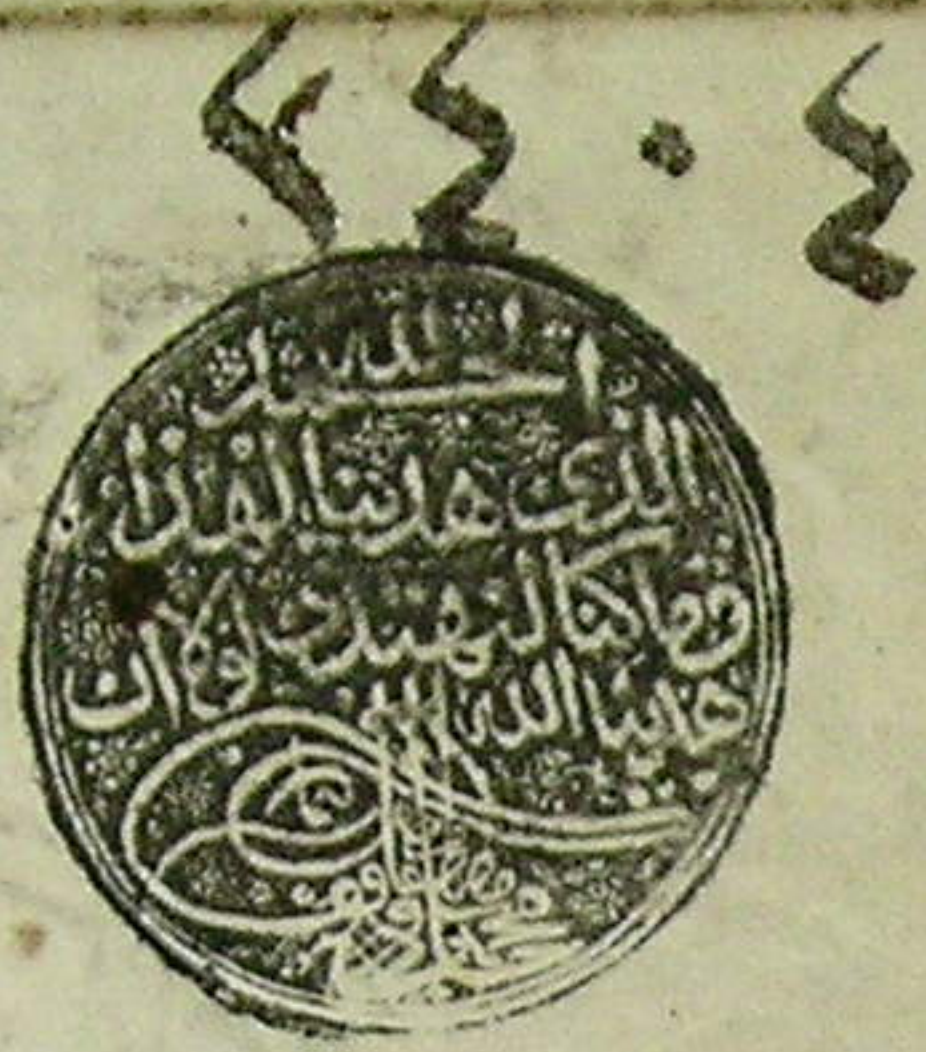 ٢٤٠٤
الحمد لله
الذى هدينا لهذا
وما كنا لنهتدى لولا ان
هدينا الله